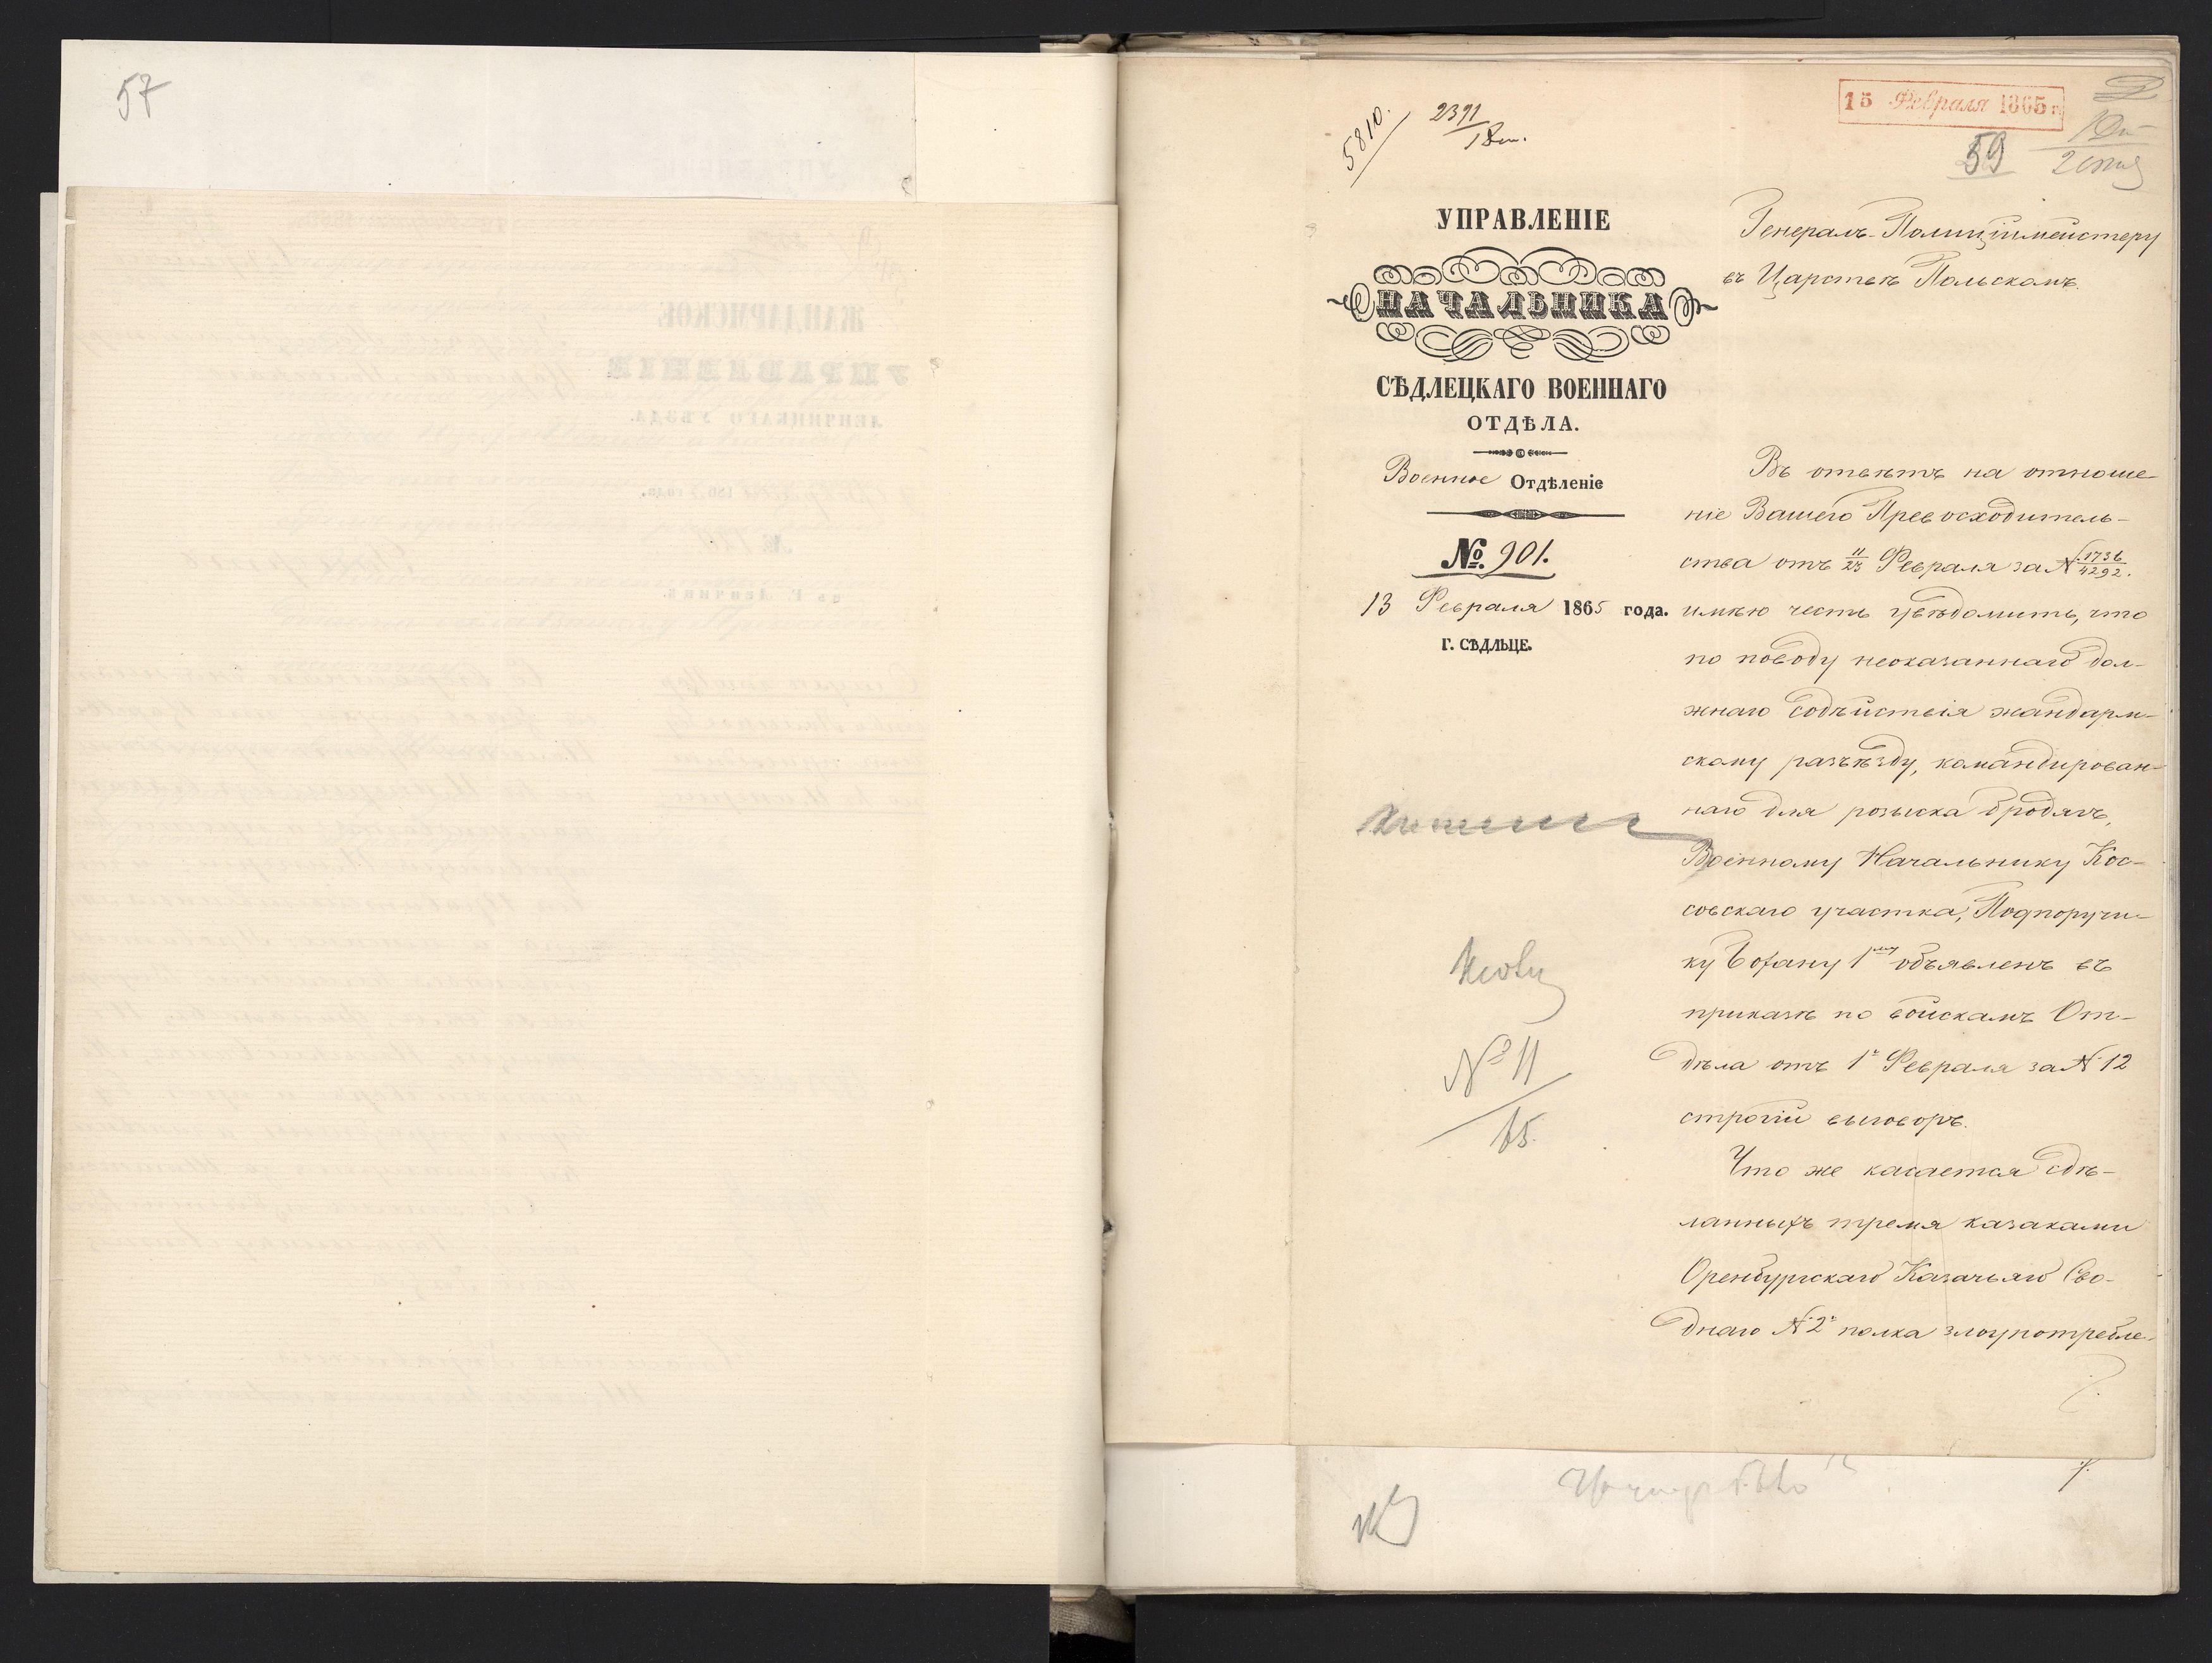 57
5810.
2391
15 Февраля 1865 г.
59
УПРАВЛЕНІЕ
НАЧАЛЬНИКА
СѢДЛЕЦКАГО ВОЕННАГО
ОТДѢЛА.
Военное Отдѣленіе
№. 901.
13 Февраля 1865 года.
Г. СѢДЛЬЦЕ.
Генералъ-Полиціймейстеру
въ Царствѣ Польскомъ.
Въ отвѣтъ на отноше-
ніе Вашего Превосходитель-
ства отъ 11/23 Февраля за № 1736/4292.
имѣю честь увѣдомить, что
по поводу неоказаннаго дол-
жнаго содѣйствія жандарм-
скому разъѣзду, командирован-
наго для розыска бродягъ,
Военному Начальнику Кос-
совскаго участка, Подпоручи-
ку 1му объявленъ въ
приказѣ по войскамъ От-
дѣла отъ 1го Февраля за № 12
строгій выговоръ.
Что же касается сдѣ-
ланныхъ тремя казаками
Оренбургскаго Казачьяго Сво-
днаго № 2го полка злоупотребле-
№ 11
65.